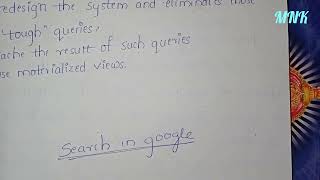 redesign the system and eliminates those
"tough" queries,
cache the result of such queries
use motrialized views.
Search in google
MNK